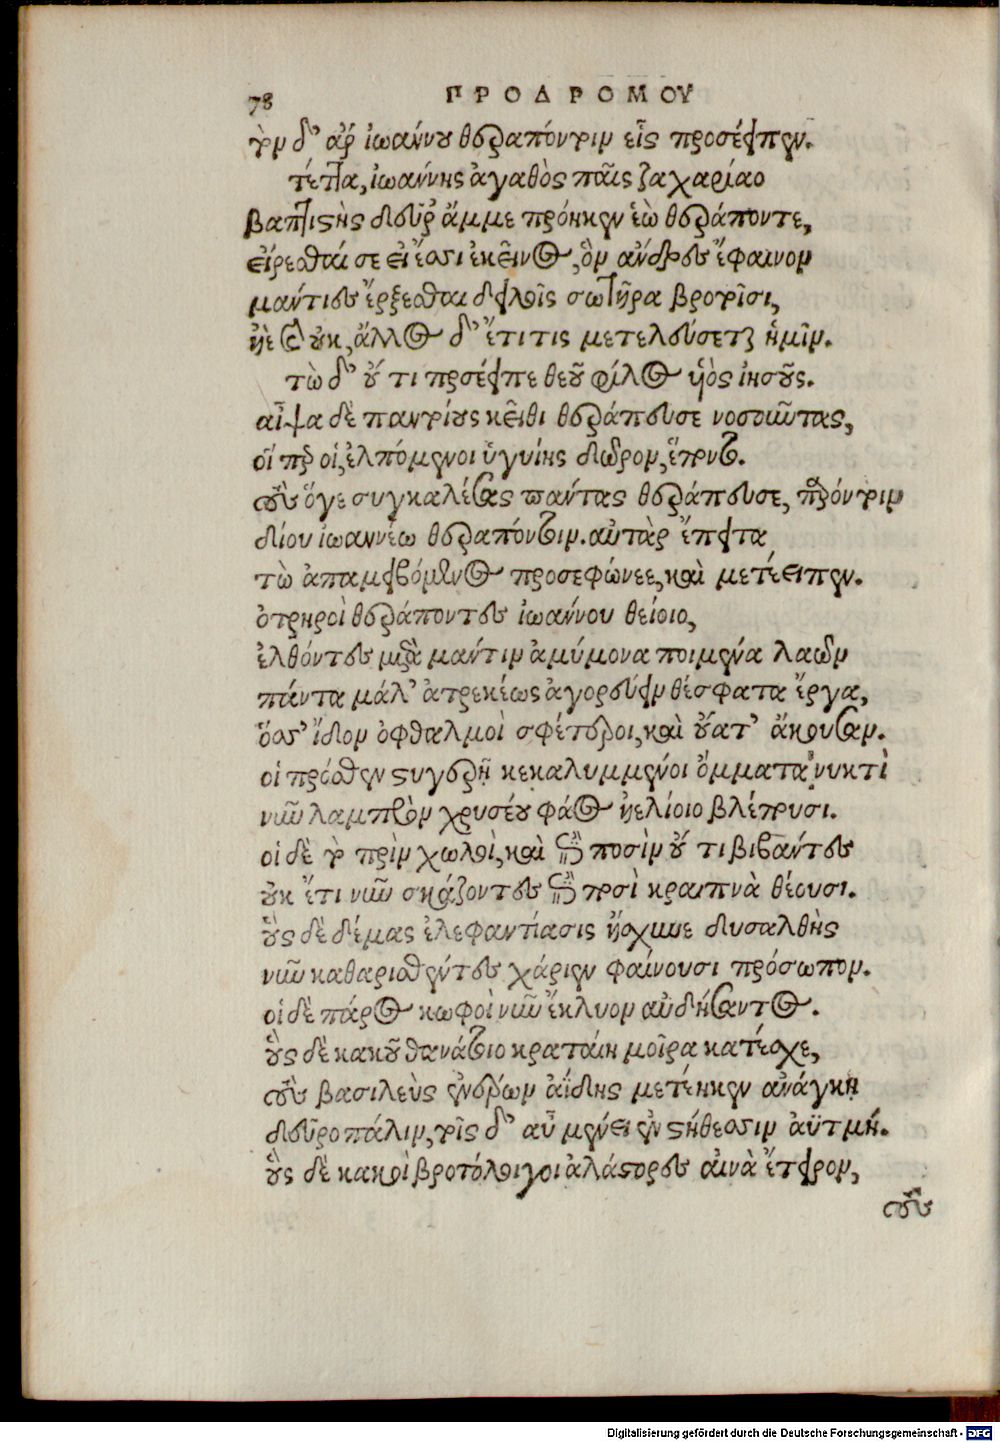 78 ΠΡΟΔΡΟΜΟΥ
τὸν δ' ἂρ ἰωάννου θεραπόντων εἷς προσέειπεν.
τέττα, ἰωάννης ἀγαθὸς παῖς ζαχαρίαο
βαπτιστὴς δεῦρ' ἄμμε πρόηκεν ἑὼ θεράποντε,
εἰρεσθαί σε εἰ ἔσσι ἐκεῖνος, ὃν ἄνδρες ἔφαινον
μάντιες ἔρξεσθαι δειλοῖς σωτῆρα βροτοῖσι,
ἠὲ οὐκ, ἄλλος δ' ἔτι τις μετελεύσεται ἡμῖν.
τὼ δ' οὔ τι προσέειπε θεοῦ φίλος υἱὸς ἰησοῦς.
αἶψα δὲ παντοίους κεῖθι θεράπευσε νοσοῦντας,
οἵ παρ οἱ, ἐλπόμενοι ὑγιίης δῶρον,
οὓς ὅγε συγκαλέσας πάντας θεράπευσε, παρόντων
δίου ἰωαννέω θεραπόντων. αὐτὰρ ἔπειτα
τὼ ἀπαμειβόμενος προσεφώνεε, καὶ μετέειπεν.
ὀτρηροὶ θεράποντες ἰωάννου θείοιο,
ἐλθόντες μετὰ μάντιν ἀμύμονα ποιμένα λαῶν
πάντα μάλ' ἀτρεκέως ἀγορεύειν θέσφατα ἔργα,
ὅσσ' ἴδον ὀφθαλμοὶ σφέτεροι, καὶ οὔατ' ἄκουσαν.
οἱ πρόσθεν στυγερῇ κεκαλυμμένοι ὄμματα νυκτὶ
νῦν λαμπρὸν χρυσέου φάος ἠελίοιο βλέπουσι.
οἱ δὲ τὸ πρὶν χωλοὶ, καὶ ποσὶν οὔ τι βιβάντες
οὐκ ἔτι νῦν σκάζοντες ποσὶ κραιπνὰ θέουσι.
οὓς δὲ δέμας ἐλεφαντίασις ᾔσχυνε δυσαλθὴς
νῦν καθαρισθέντες χάριεν φαίνουσι πρόσωπον.
οἱ δὲ πάρος κωφοὶ νῦν ἔκλυον αὐδήσαντος.
οὓς δὲ κακοῦ θανάτοιο κραταιὴ μοῖρα κατέσχε,
οὓς βασιλεὺς ἐνέρων ἀΐδης μετέηκεν ἀνάγκῃ
δεῦρο πάλιν, τοῖς δ' αὖ μένει ἐν στήθεσσιν ἀϋτμή.
οὓς δὲ κακοὶ βροτόλοιγοι ἀλάστορες αἰνὰ ἔτειρον,
οὓς
Digitalisierung gefördert durch die Deutsche Forschungsgemeinschaft - DFG